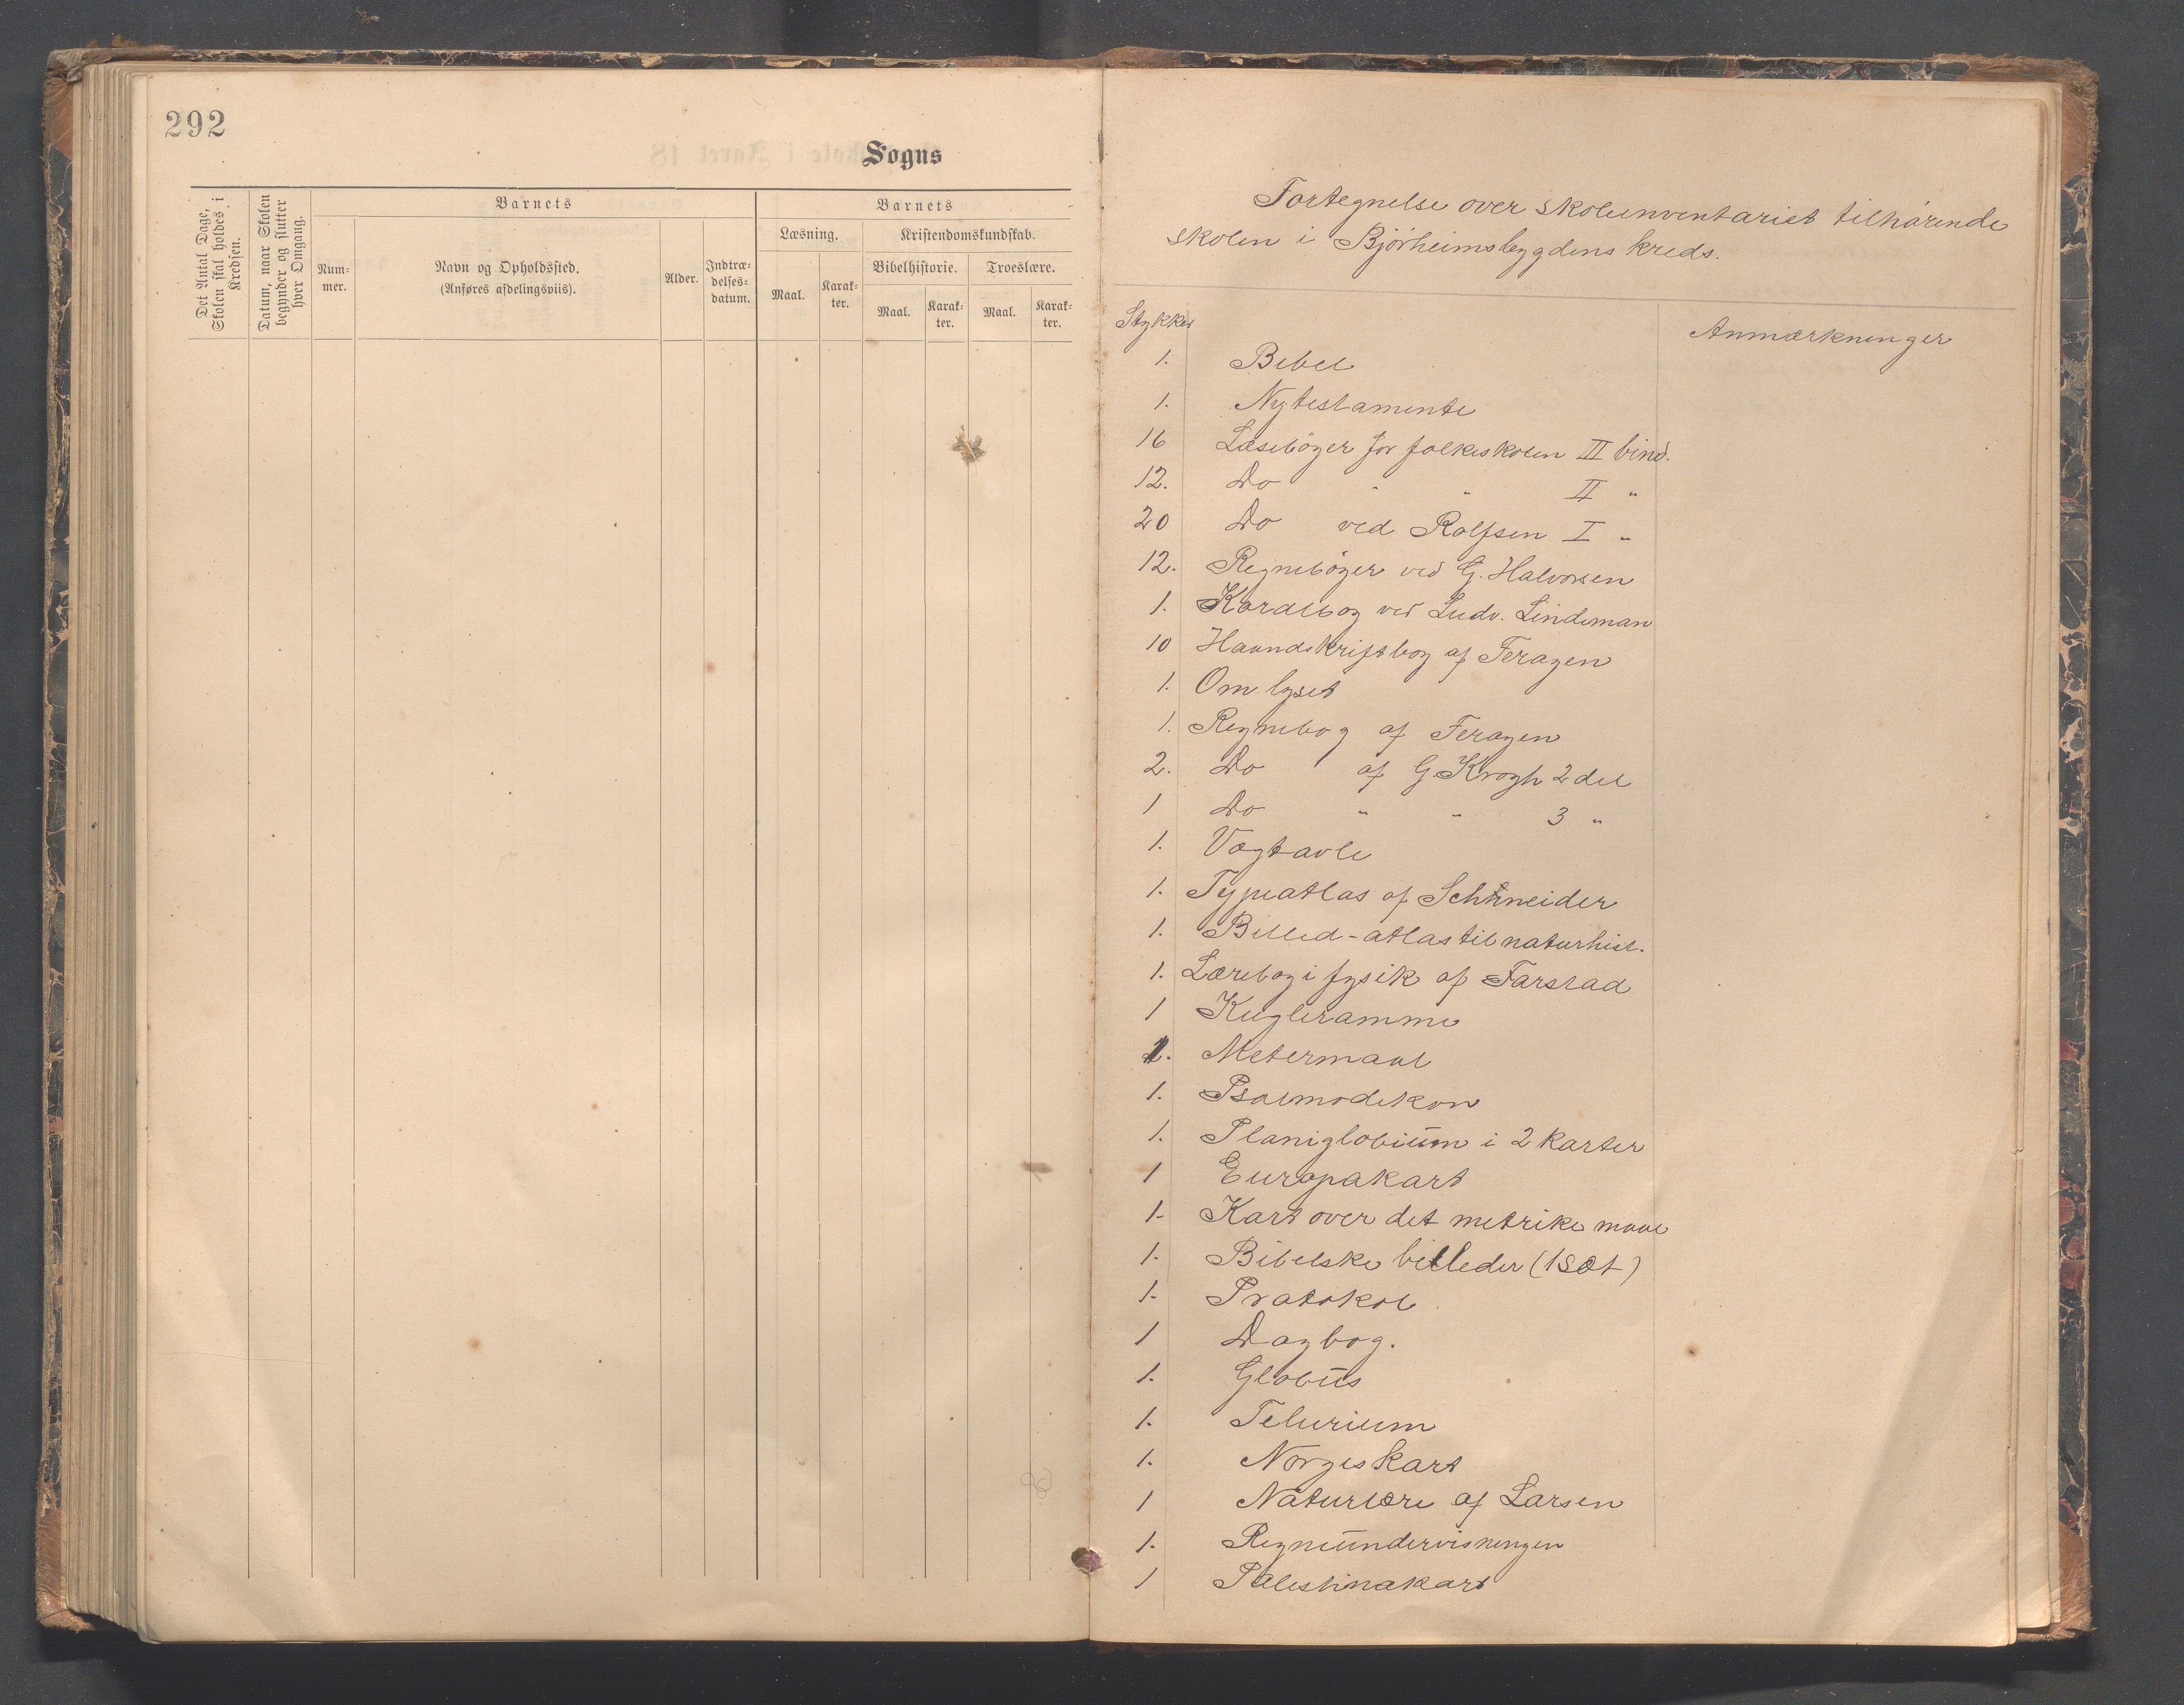 292
Sogns
Det Antal Dage,
Skolen skal holdes i
Kredsen.
Datum, naar Skolen
begynder og slutter
hver Omgang.
Barnets
Num-
mer.
Navn og Opholdssted.
(Anføres afdelingsviis).
Alder.
Indtræ-
delses-
datum.
Barnets
Læsning.
Kristendomskundskab.
Maal.
Karak-
ter.
Bibelhistorie.
Troeslære.
Maal.
Karak-
ter.
Maal.
Karak-
ter.
Fortegnelse over skoleinventariet tilhørende
skolen i Bjørheimsbygdens kreds.
Stykker
Anmærkninger
1. Bibel
1. Nytestamente
16 Læsebøger for folkeskolen III bind.
12. Do " " II "
20 Do ved Rolfsen I "
12. Regnebøger ved G. Halvorsen
1. Koralbog ved Ludv. Lindeman
10 Haandskriftbog af Feragen
1. Om lyset
1. Regnebog af Feragen
2. Do af G. Krogh 2 del
1 Do " " 3 "
1. Vægtavle
1. Typeatlas af Schneider
1. Billed-atlas til naturhist.
1. Lærebog i fysik af Farstad
1 Kugleramme
1. Metermaal
1. Psalmodikon
1. Planiglobium i 2 karter
1 Europakart
1. Kart over det metrike maal
1. Bibelske billeder (1 sæt)
1. Protokol
1 Dagbog.
1. Globus
1. Telurium
1. Norgeskart
1 Naturlære af Larsen
1. Regneundervisningen
1 Palestinakart